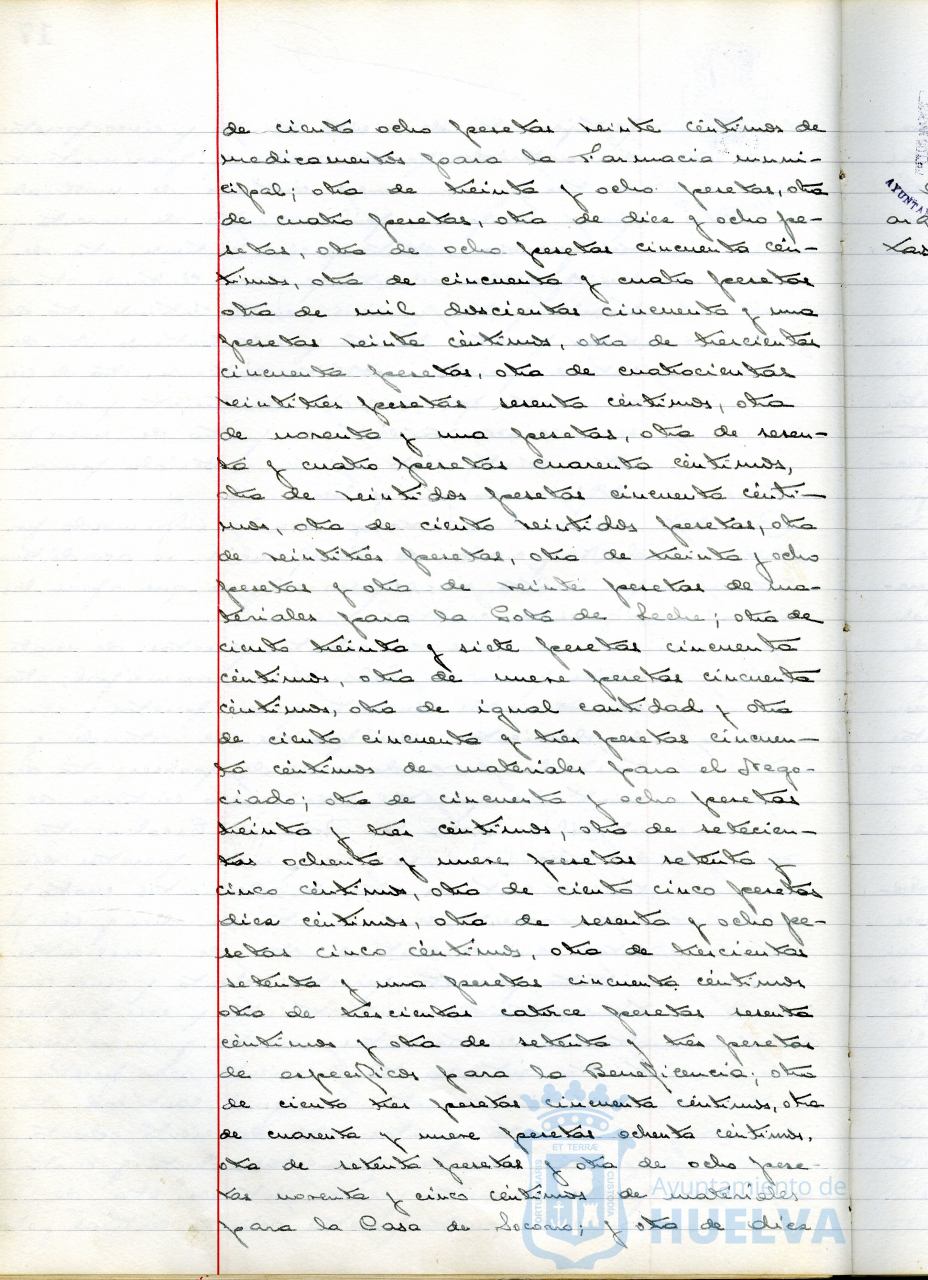 de ciento ocho pesetas veinte céntimos de
medicamentos para la Farmacia muni-
cipal; otra de treinta y ocho pesetas, otra
de cuatro pesetas, otra de diez y ocho pe-
setas, otra de ocho pesetas cincuenta cén-
timos, otra de cincuenta y cuatro pesetas
otra de mil doscientas cincuenta y una
pesetas veinte céntimos, otra de trescientas
cincuenta pesetas, otra de cuatrocientas
veintitres pesetas sesenta céntimos, otra
de noventa y una pesetas, otra de sesen-
ta y cuatro pesetas cuarenta céntimos,
otra de veintidos pesetas cincuenta cénti-
mos, otra de ciento veintidos pesetas, otra
de veintitres pesetas, otra de treinta y ocho
pesetas y otra de veinte pesetas de ma-
teriales para la Gota de Leche; otra de
ciento treinta y siete pesetas cincuenta
céntimos, otra de nueve pesetas cincuenta
céntimos, otra de igual cantidad y otra
de ciento cincuenta y tres pesetas cincuen-
ta céntimos de materiales para el Nego-
ciado; otra de cincuenta y ocho pesetas
treinta y tres céntimos, otra de setecien-
tas ochenta y nueve pesetas setenta y
cinco céntimos, otra de ciento cinco pesetas
diez céntimos, otra de sesenta y ocho pe-
setas cinco céntimos, otra de trescientas
setenta y una pesetas cincuenta céntimos
otra de trescientas catorce pesetas sesenta
céntimos y otra de setenta y tres pesetas
de específicos para la Beneficencia; otra
de ciento tres pesetas cincuenta céntimos, otra
de cuarenta y nueve pesetas ochenta céntimos,
otra de setenta pesetas y otra de ocho pese-
tas noventa y cinco céntimos de materiales
para la Casa de Socorro; y otra de diez
ET TERRÆ
PORTUS MARIS
CUSTODIA
Ayuntamiento de
HUELVA